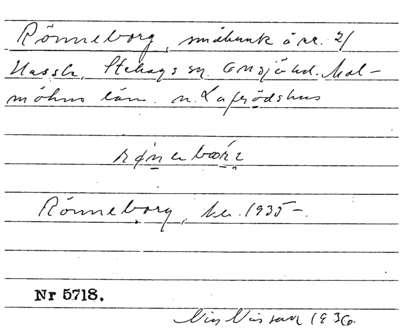 Rönneborg, småbruk å nr. 2/
Hassle, Stehags sn. Onsjö hd. Mal-
möhus län. n. Lafrödshus
Rönneborg, be. 1935-.
Nr 5718.
Nils Nilsson 1936.